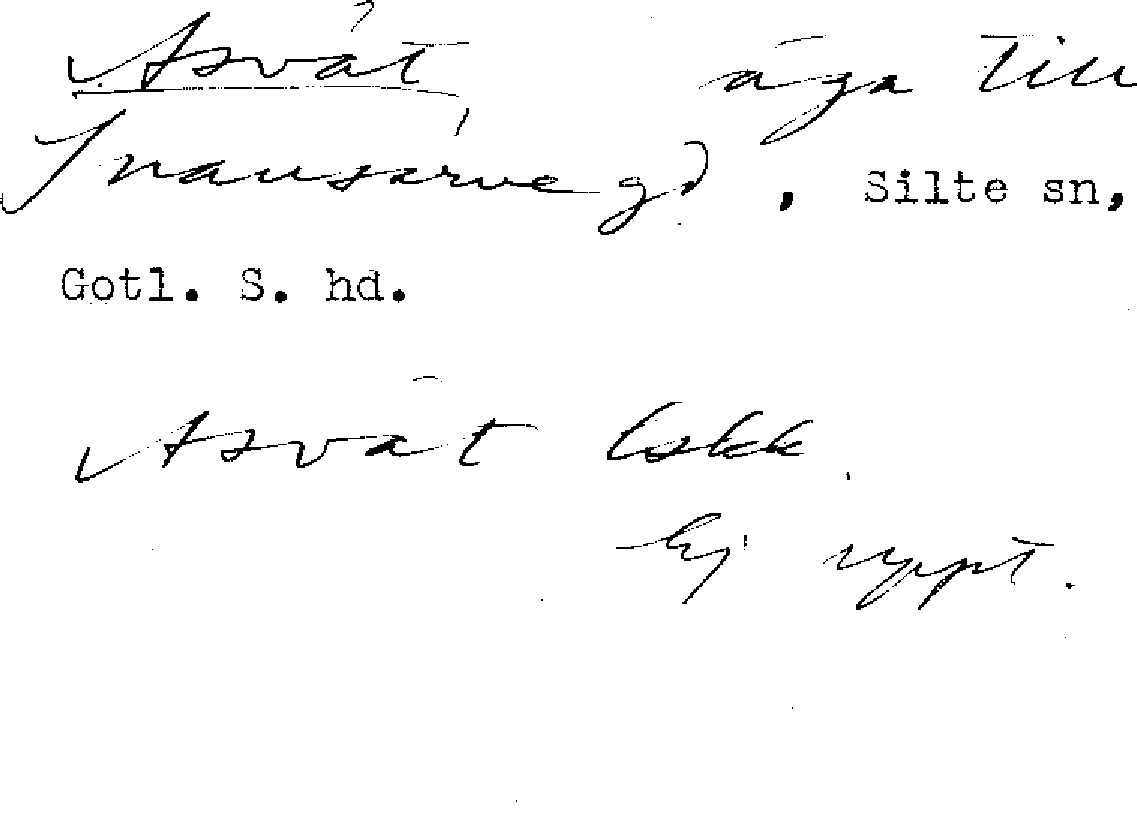 Asvät äga till
Snausarve gd, Silte sn,
Gotl. S. hd.
Asvät Lskk.
Ej uppt.